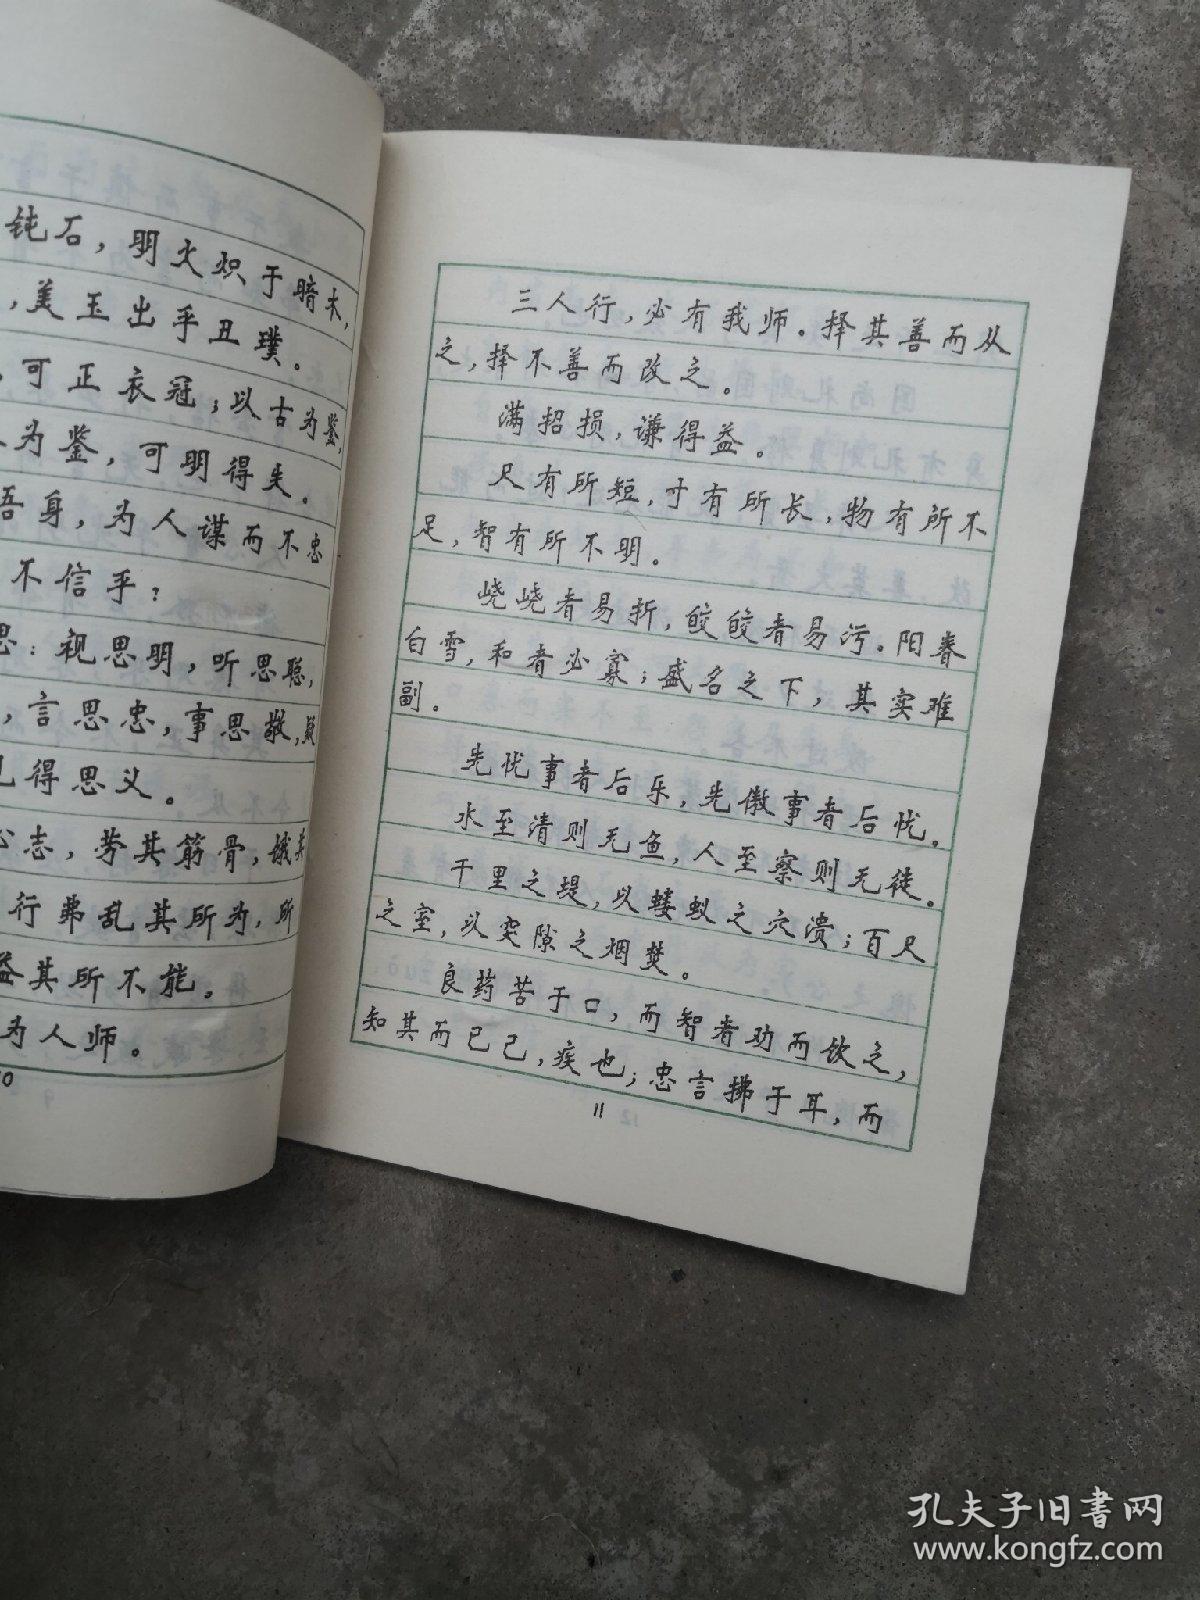 钝石，明火炽于暗木，
，美玉出乎丑璞。
，可正衣冠；以古为鉴，
为鉴，可明得失。
吾身，为人谋而不忠
不信乎？
思：视思明，听思聪，
，言思忠，事思敬，疑
得思义。
志，劳其筋骨，饿其
行弗乱其所为，所
益其所不能。
为人师。
10
三人行，必有我师。择其善而从
之，择不善而改之。
满招损，谦得益。
尺有所短，寸有所长，物有所不
足，智有所不明。
峣峣者易折，皎皎者易污。阳春
白雪，和者必寡；盛名之下，其实难
副。
先忧事者后乐，先傲事者后忧。
水至清则无鱼，人至察则无徒。
千里之堤，以蝼蚁之穴溃；百尺
之室，以突隙之烟焚。
良药苦于口，而智者劝而饮之，
知其而已己，疾也；忠言拂于耳，而
11
孔夫子旧书网
www.kongfz.com